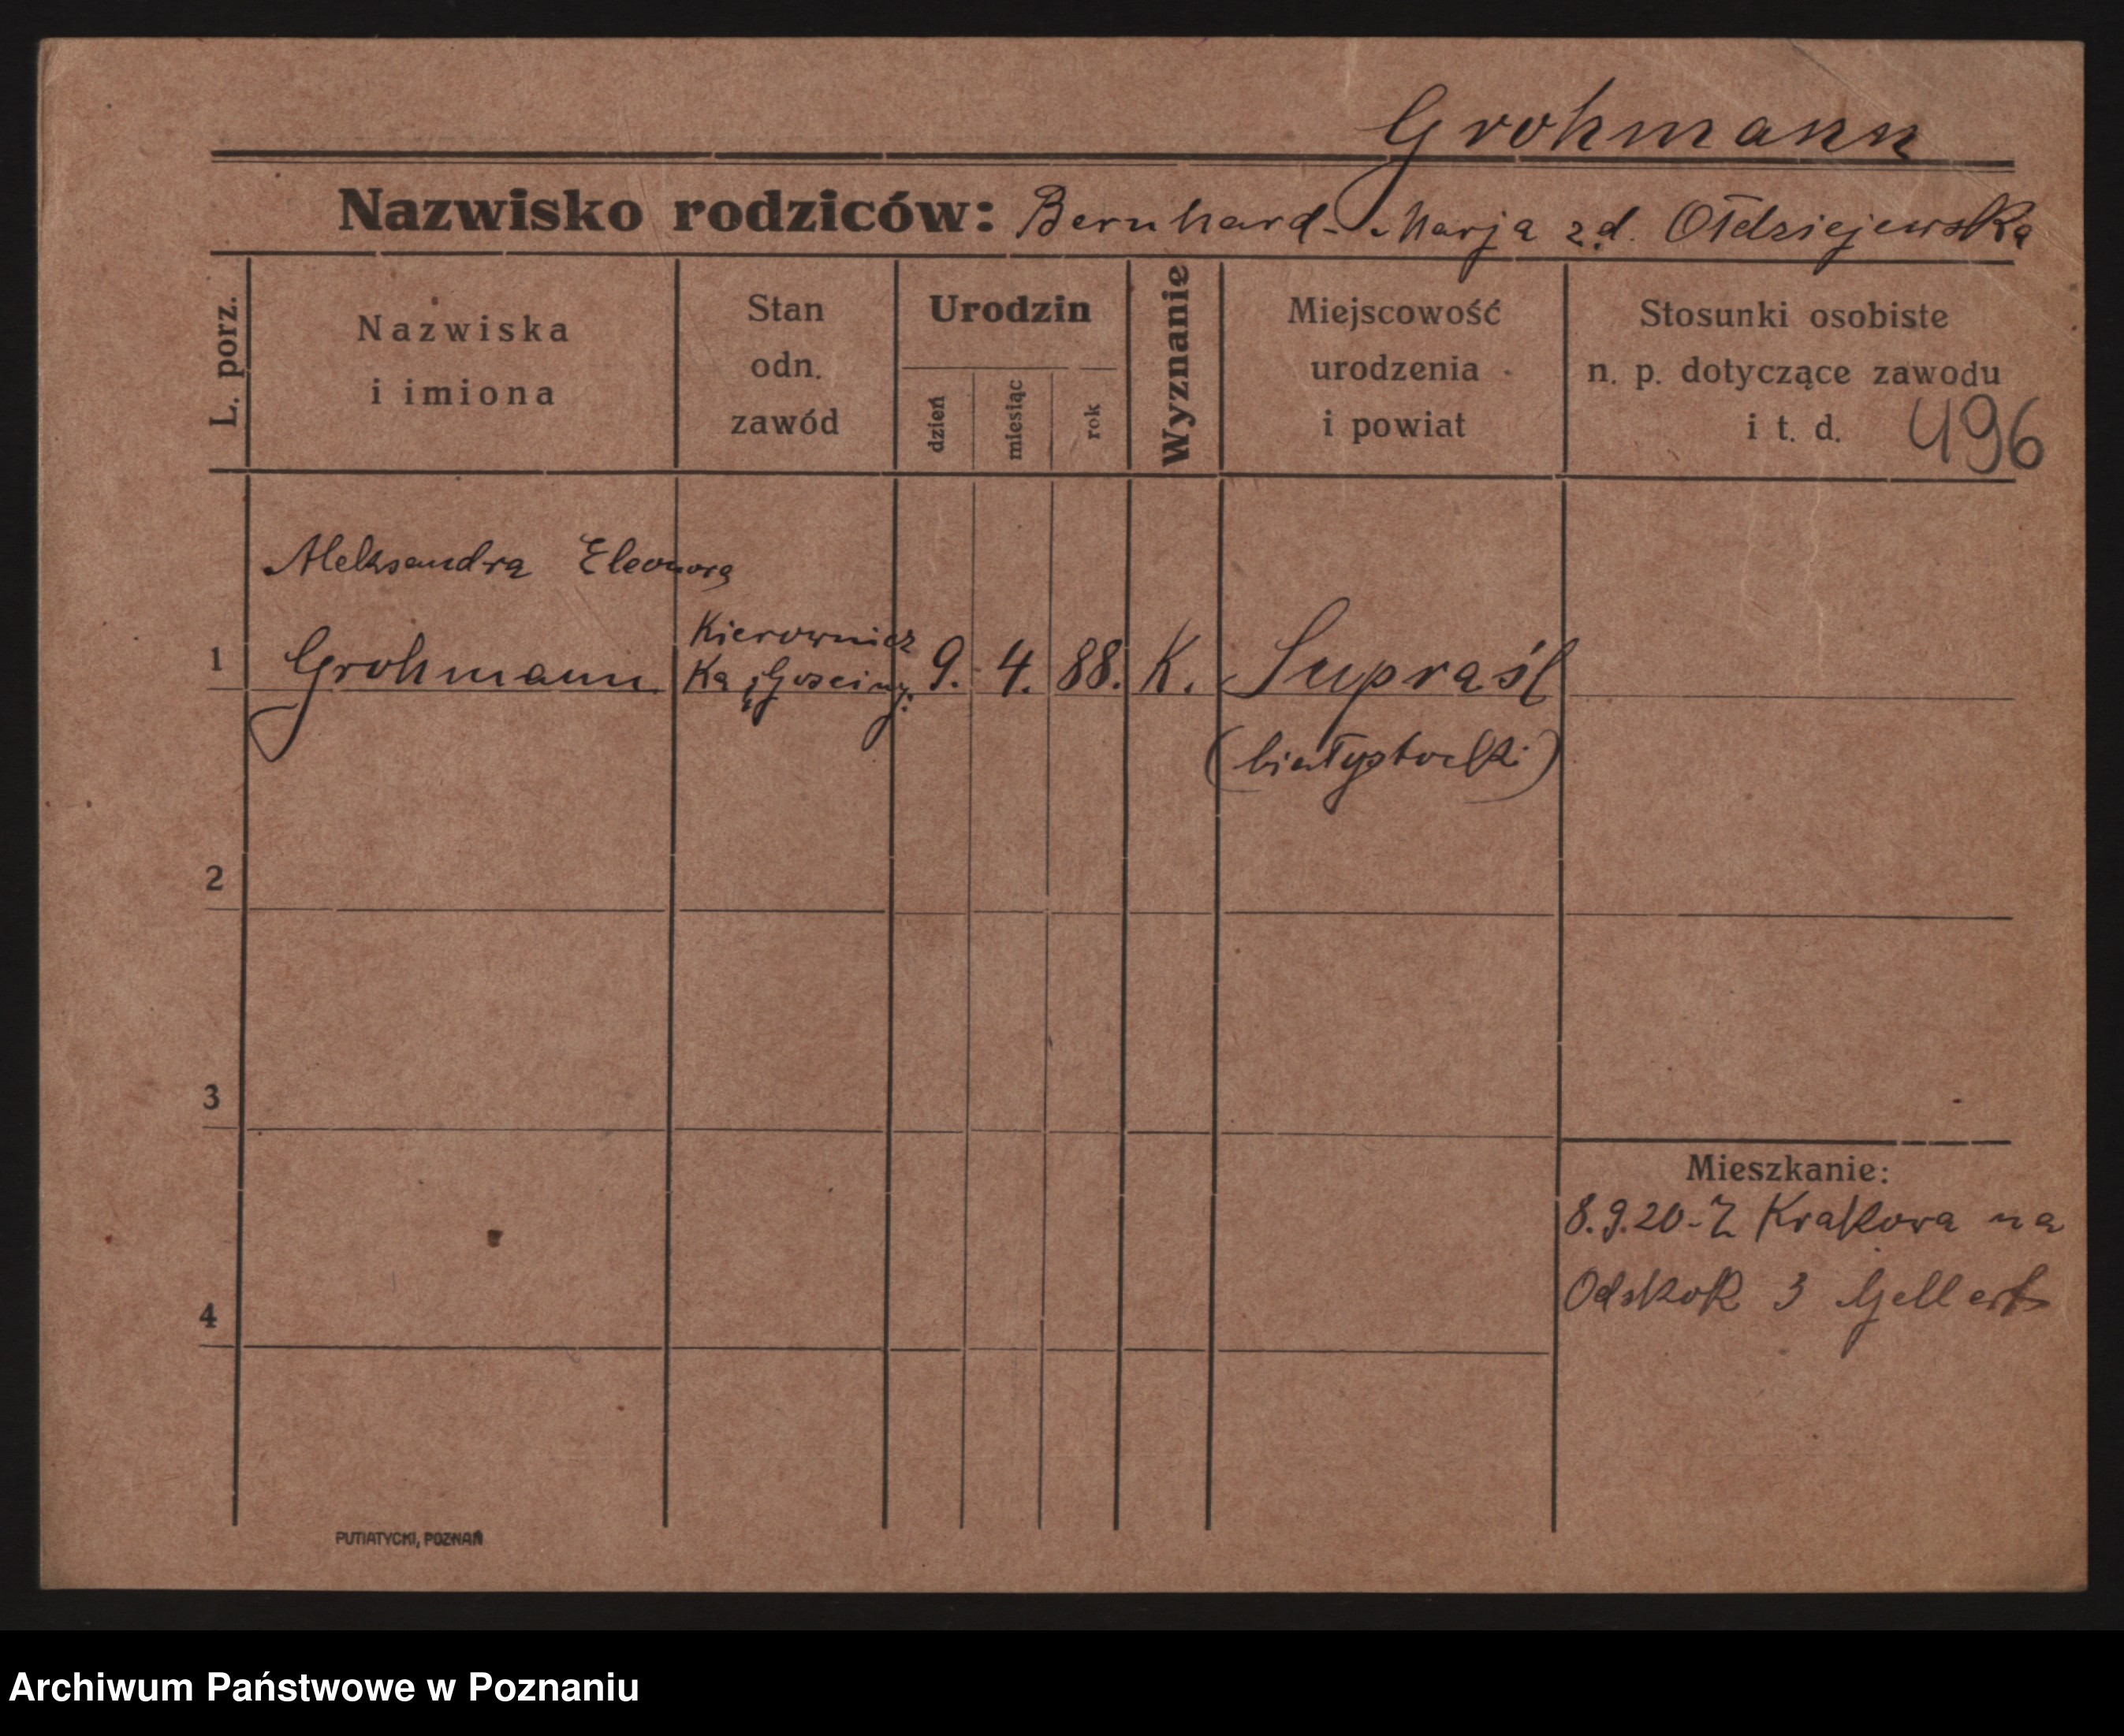 Grohmann
Nazwisko rodziców: Bernhard - Marja z d. Ołdziejewska
L. porz.
Nazwiska
i imiona
Stan
odn.
zawód
Urodzin
dzień
miesiąc
rok
Wyznanie
Miejscowość
urodzenia
i powiat
Stosunki osobiste
n. p. dotyczące zawodu
i t. d.
496
Aleksandra Eleonora
1 Grohmann
Kierownicz
ka
9. 4. 88. K. Supraśl
(białystocki)
2
3
4
Mieszkanie:
8.9.20 - Z Krakowa na
Odskok 3 Gellert
PUTIATYCKI, POZNAŃ
Archiwum Państwowe w Poznaniu